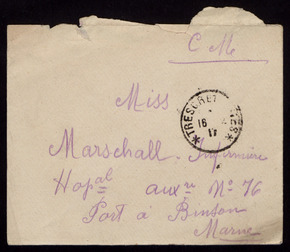 C. M.
Miss
Marschall. Infirmière
Hopal auxre No 76
Port à Binson
Marne
TRESOR ET
* 16
17 *